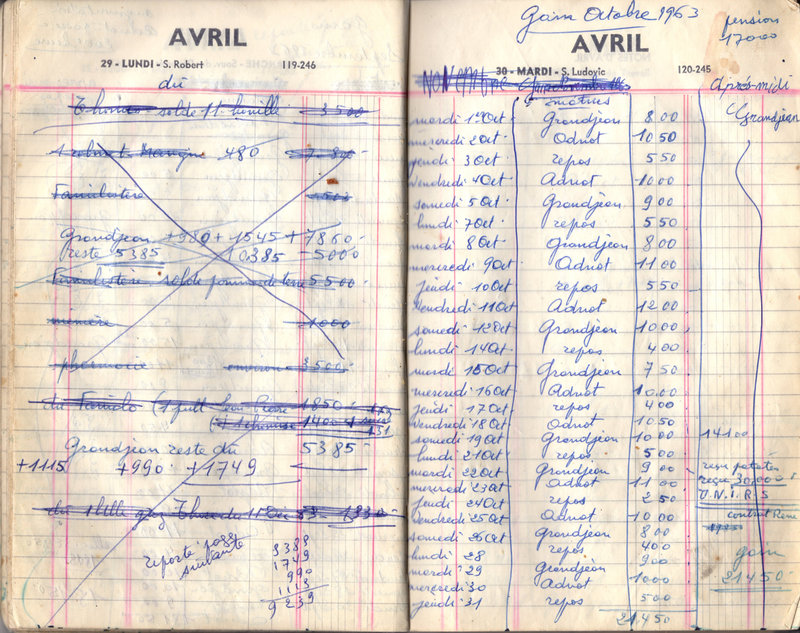 AVRIL
29 - LUNDI - S. Robert 119-246
du
Thomas solde 11 bouille 3500
480
Familistère
Grandjean +980 +1545 +7860
reste 5385 10.385 - 5000
Familistère solde pomme de terre 5500
mémère 1000
pharmacie environ 3500
du Familo (1 pull 1850
1400
131
Grandjean reste du 5385
+1115 +990 +1749
du
reporté page
suivante
5385
1749
990
1115
9239
Gain Octobre 1963
pension
17000
AVRIL
30 - MARDI - S. Ludovic 120-245
NOVEMBRE
matines
Après-midi
Grandjean
mardi 1er Oct Grandjean 800
mercredi 2 Oct Adnot 1050
jeudi 3 Oct repos 550
vendredi 4 Oct Adnot 1000
samedi 5 Oct Grandjean 900
lundi 7 Oct repos 550
mardi 8 Oct Grandjean 800
mercredi 9 Oct Adnot 1100
jeudi 10 Oct repos 550
vendredi 11 Oct Adnot 1200
samedi 12 Oct Grandjean 1000
lundi 14 Oct repos 400
mardi 15 Oct Grandjean 750
mercredi 16 Oct Adnot 1000
jeudi 17 Oct repos 400
vendredi 18 Oct Adnot 1050
samedi 19 Oct Grandjean 1000 14100
lundi 21 Oct repos 500
mardi 22 Oct Grandjean 900
mercredi 23 Oct Adnot 1100
reçu 30.000
jeudi 24 Oct repos 250
U.N.I.R.S
vendredi 25 Oct Adnot 1000
samedi 26 Oct Grandjean 800
lundi 28 repos 400
mardi 29 Grandjean 900
gain
mercredi 30 Adnot 1000
21450
jeudi 31 repos 500
21450